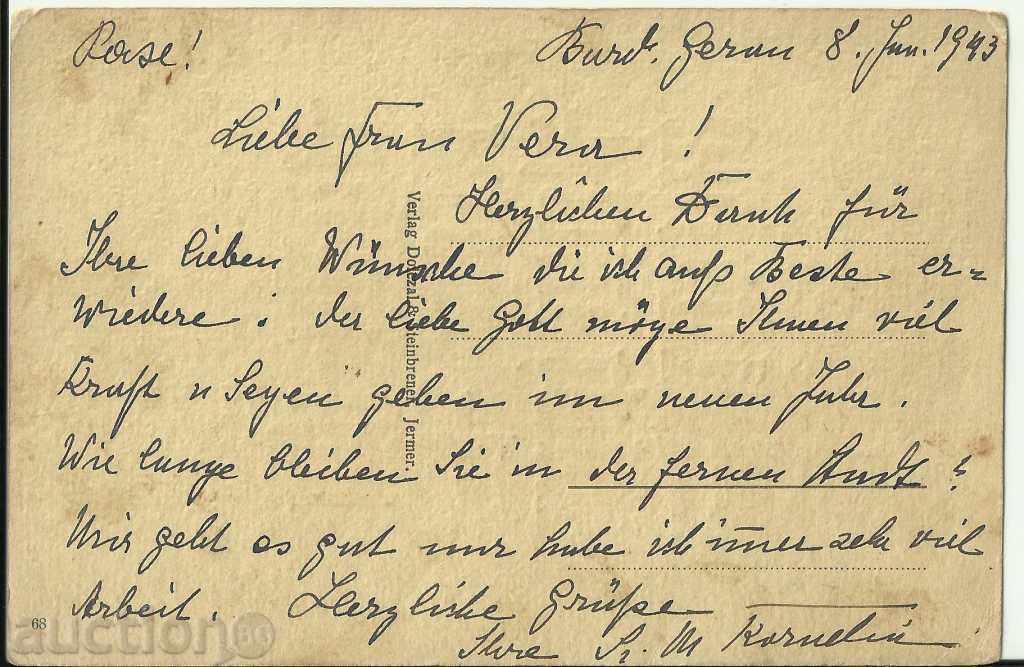 Pax!
Bard. Geran 8. Jan. 1943
Liebe Frau Vera!
Herzlichen Dank für
Ihre lieben Wünsche die ich aufs Beste er=
wiedere. der liebe Gott möge Ihnen viel
Kraft u Segen geben im neuen Jahr.
Wie lange bleiben Sie in der fernen Stadt?
Mir geht es gut nur habe ich im̄er sehr viel
Arbeit. Herzliche Grüße
Ihre Sr. M Kornelia
Verlag Dolezal & Steinbrener, Jermer.
68
auction